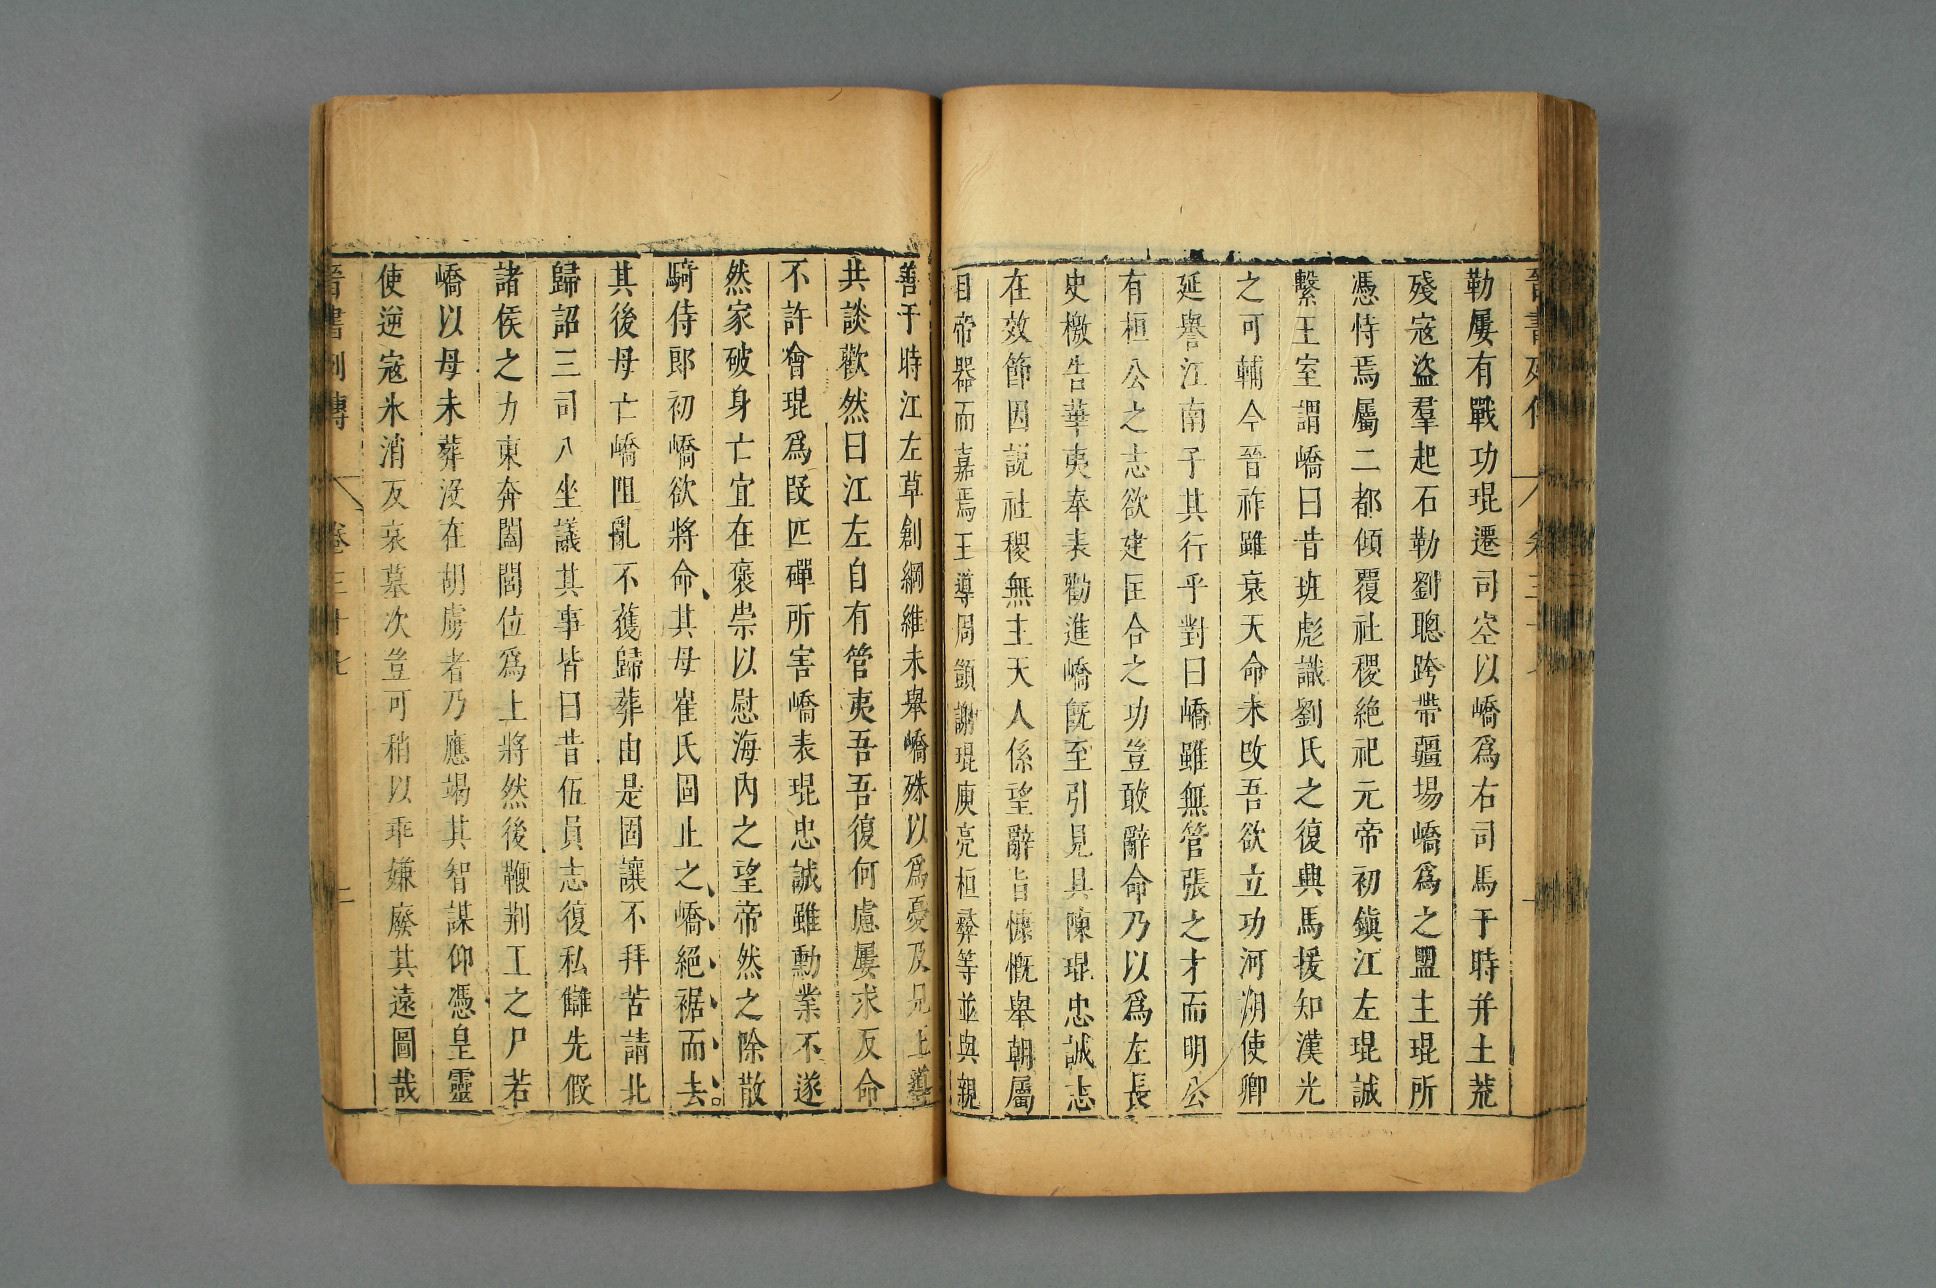 晉書列傳 卷三十七 一
勒屢有戰功琨遷司空以嶠爲右司馬于時并土荒
殘寇盜羣起石勒劉聰跨帶疆場嶠爲之盟主琨所
憑恃焉屬二都傾覆社稷絶祀元帝初鎭江左琨誠
繫王室謂嶠曰昔班彪識劉氏之復興馬援知漢光
之可輔今晉祚雖衰天命未改吾欲立功河朔使卿
延譽江南子其行乎對曰嶠雖無管張之才而明公
有桓公之志欲建匡合之功豈敢辭命乃以爲左長
史檄告華夷奉表勸進嶠旣至引見具陳琨忠誠志
在效節因説社稷無主天人係望辭旨慷慨舉朝屬
目帝器而嘉焉王導周顗謝琨庾亮桓彝等並與親
善于時江左草創綱維未舉嶠殊以爲憂及見王導
共談歡然曰江左自有管夷吾吾復何慮屢求反命
不許會琨爲段匹磾所害嶠表琨忠誠雖勳業不遂
然家破身亡宜在襃崇以慰海内之望帝然之除散
騎侍郎初嶠欲將命其母崔氏固止之嶠絕裾而去
其後母亡嶠阻亂不獲歸葬由是固讓不拜苦請北
歸詔三司八坐議其事皆曰昔伍員志復私讎先假
諸侯之力東奔闔閭位爲上將然後鞭荆王之尸若
嶠以母未葬沒在胡虜者乃應竭其智謀仰憑皇靈
使逆寇冰消反哀墓次豈可稍以乖嫌廢其遠圖哉
晉書列傳 卷三十七 二